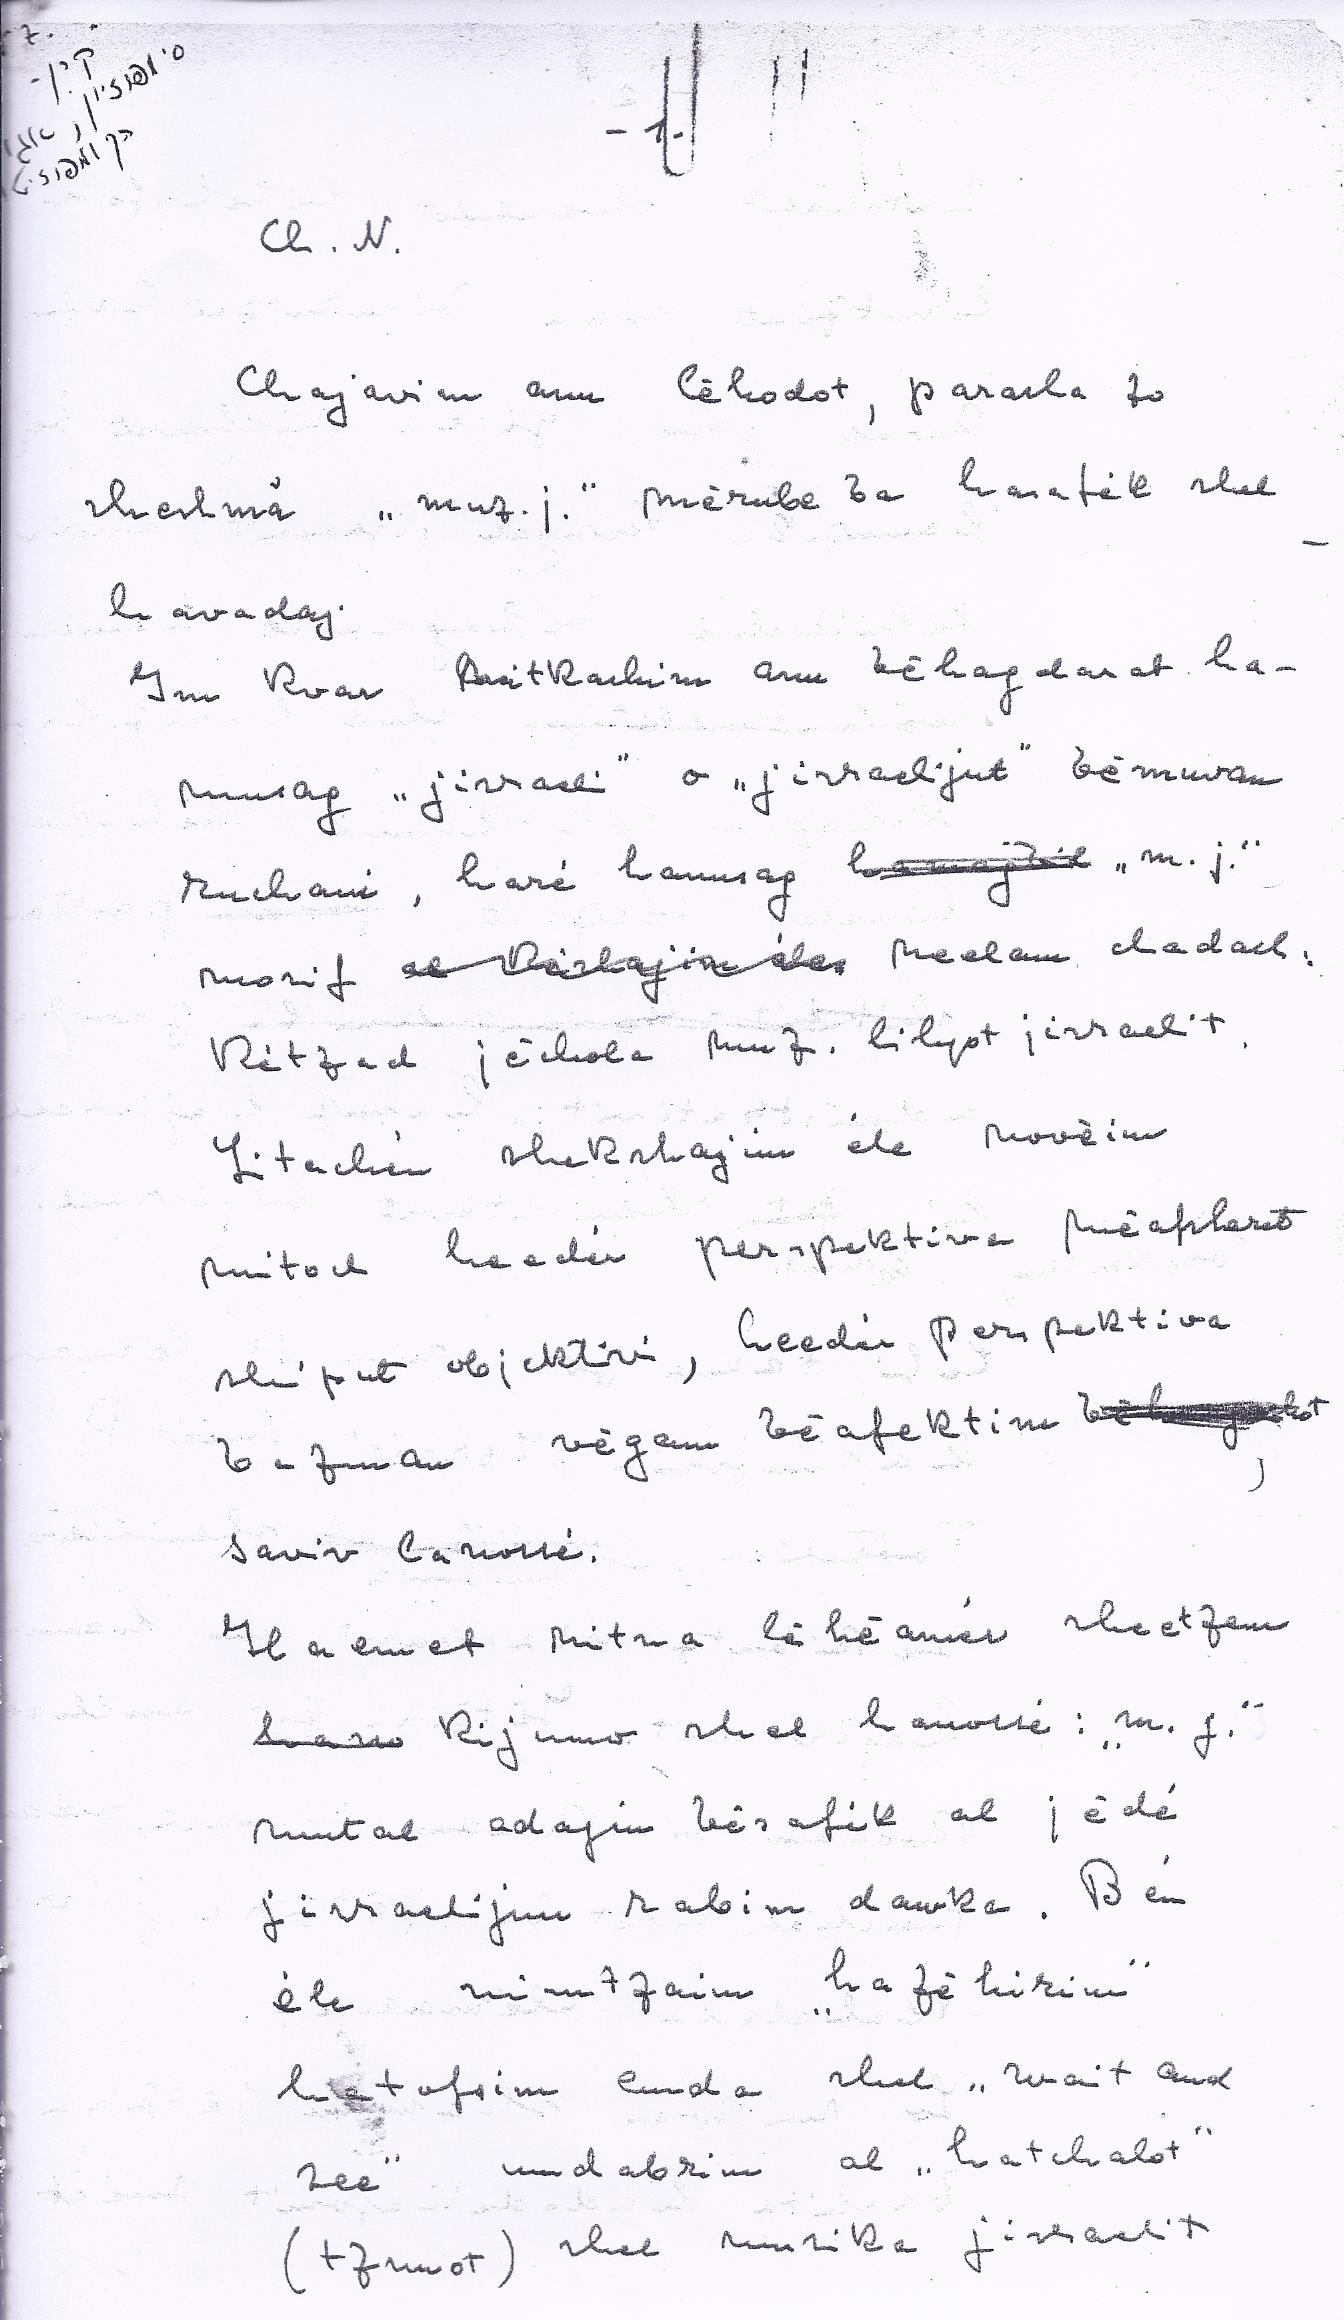 7.
קרן-
סימפוזיון,
- 1. -
Ch. N.
Chajavim anu lēhodot, parasha zo
sheshmā „muz. j.“ mērube ba hasafēk shel
havadaj.
Im kvar mitkashim anu bēhagdarat ha-
musag „jisraeli“ o „jisraelijut“ bēmuvan
ruchani, haré hamusag „m. j.“
mosif neelam chadash:
Kétzad jēchola muz. lihjot jisraelit.
Jitachén shekshajim éle novēim
mitoch heedér perspektiva mēafsheret
shiput objektivi, heedér perspektiva
bazman vēgam bēafektim
,
saviv lanossé.
Haemet nitna lēhēamér sheetzem
hano kijumo shel hanossé: „m. j.“
mutal adajin bēsafék al jēdé
jisraelijim rabim davka. Bén
éle nimtzaim „hazēhirim“
hatofsim emda shel „wait and
see“ umdabrim al „hatchalot“
(tzmot) shel musika jisraelit